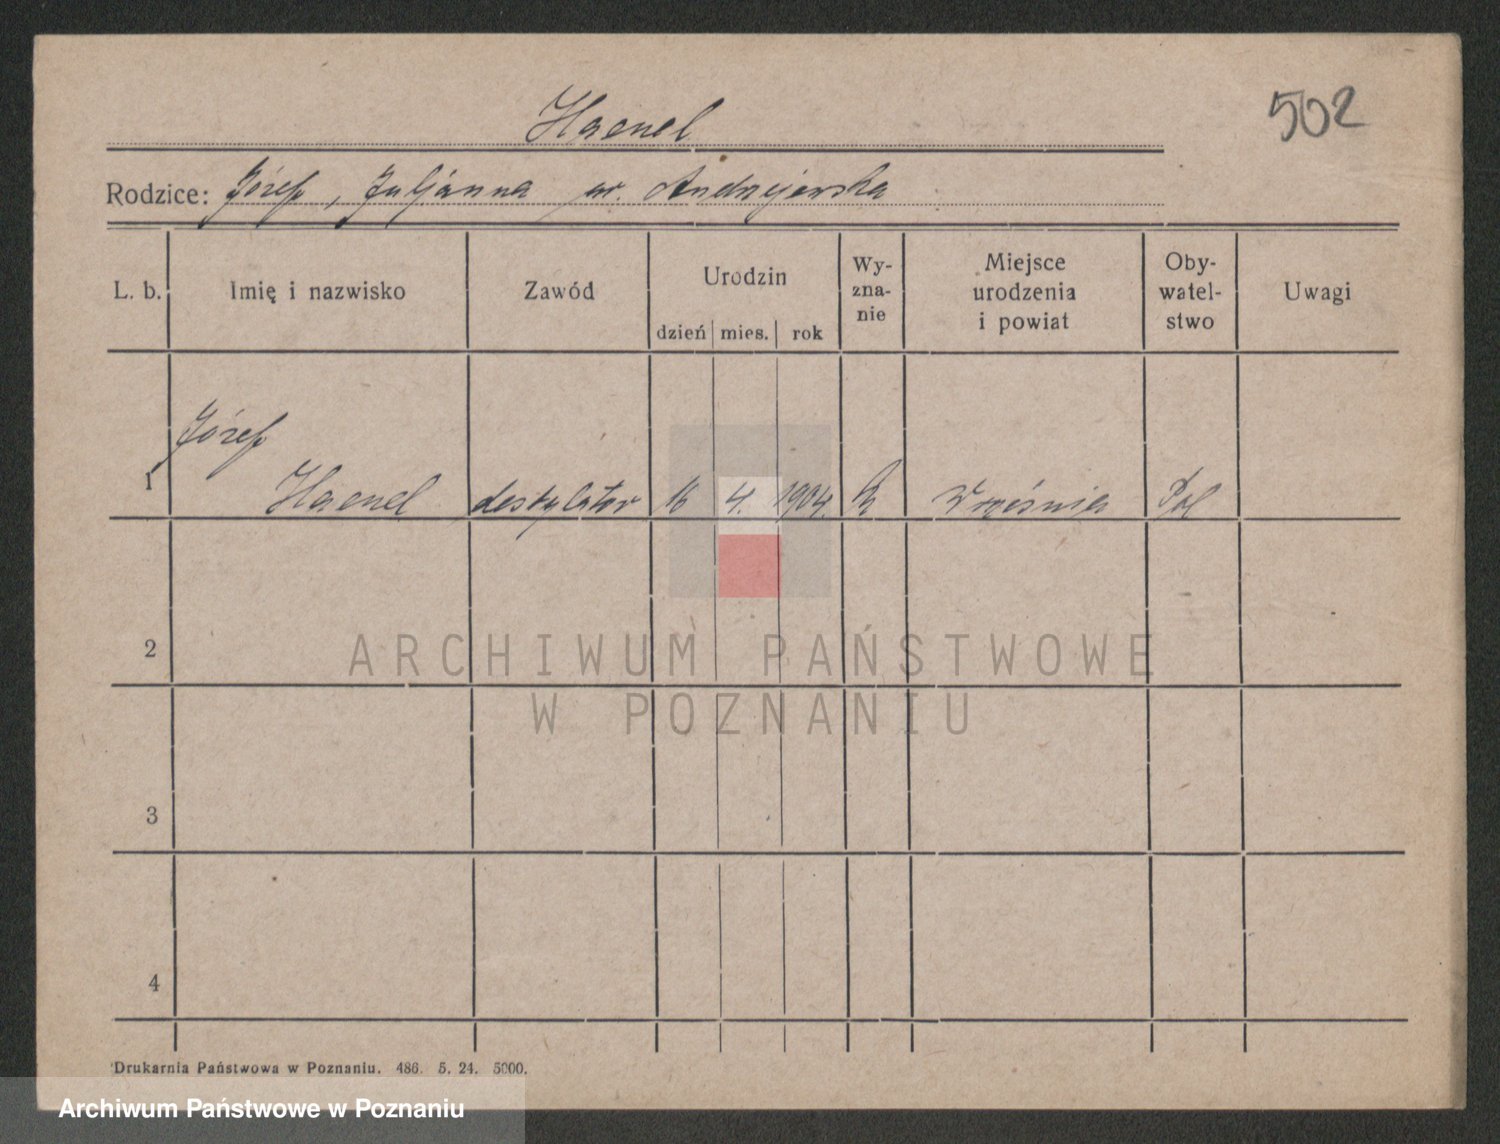 Haenel
502
Rodzice: Józef, Juljanna ur. Andrzejewska
L. b. Imię i nazwisko Zawód Urodzin dzień mies. rok Wy-zna-nie Miejsce urodzenia i powiat Oby-watel-stwo Uwagi
Józef
1 Haenel destylator 16 4. 1904. k Września Pol
2
ARCHIWUM PAŃSTWOWE
W POZNANIU
3
4
Drukarnia Państwowa w Poznaniu. 486. 5. 24. 5000.
Archiwum Państwowe w Poznaniu